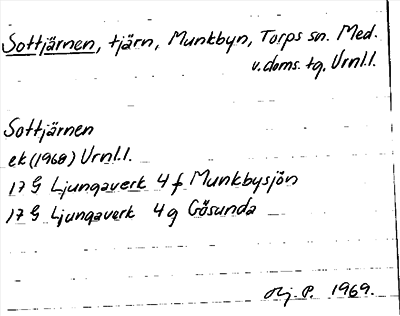 Sottjärnen, tjärn, Munkbyn, Torps sn. Med.
v. doms. tg, Urnl.l.
Sottjärnen
ek (1968) Urnl.l.
17 G Ljungaverk 4 f Munkbysjön
17 G Ljungaverk 4 g Gösunda
P. 1969.